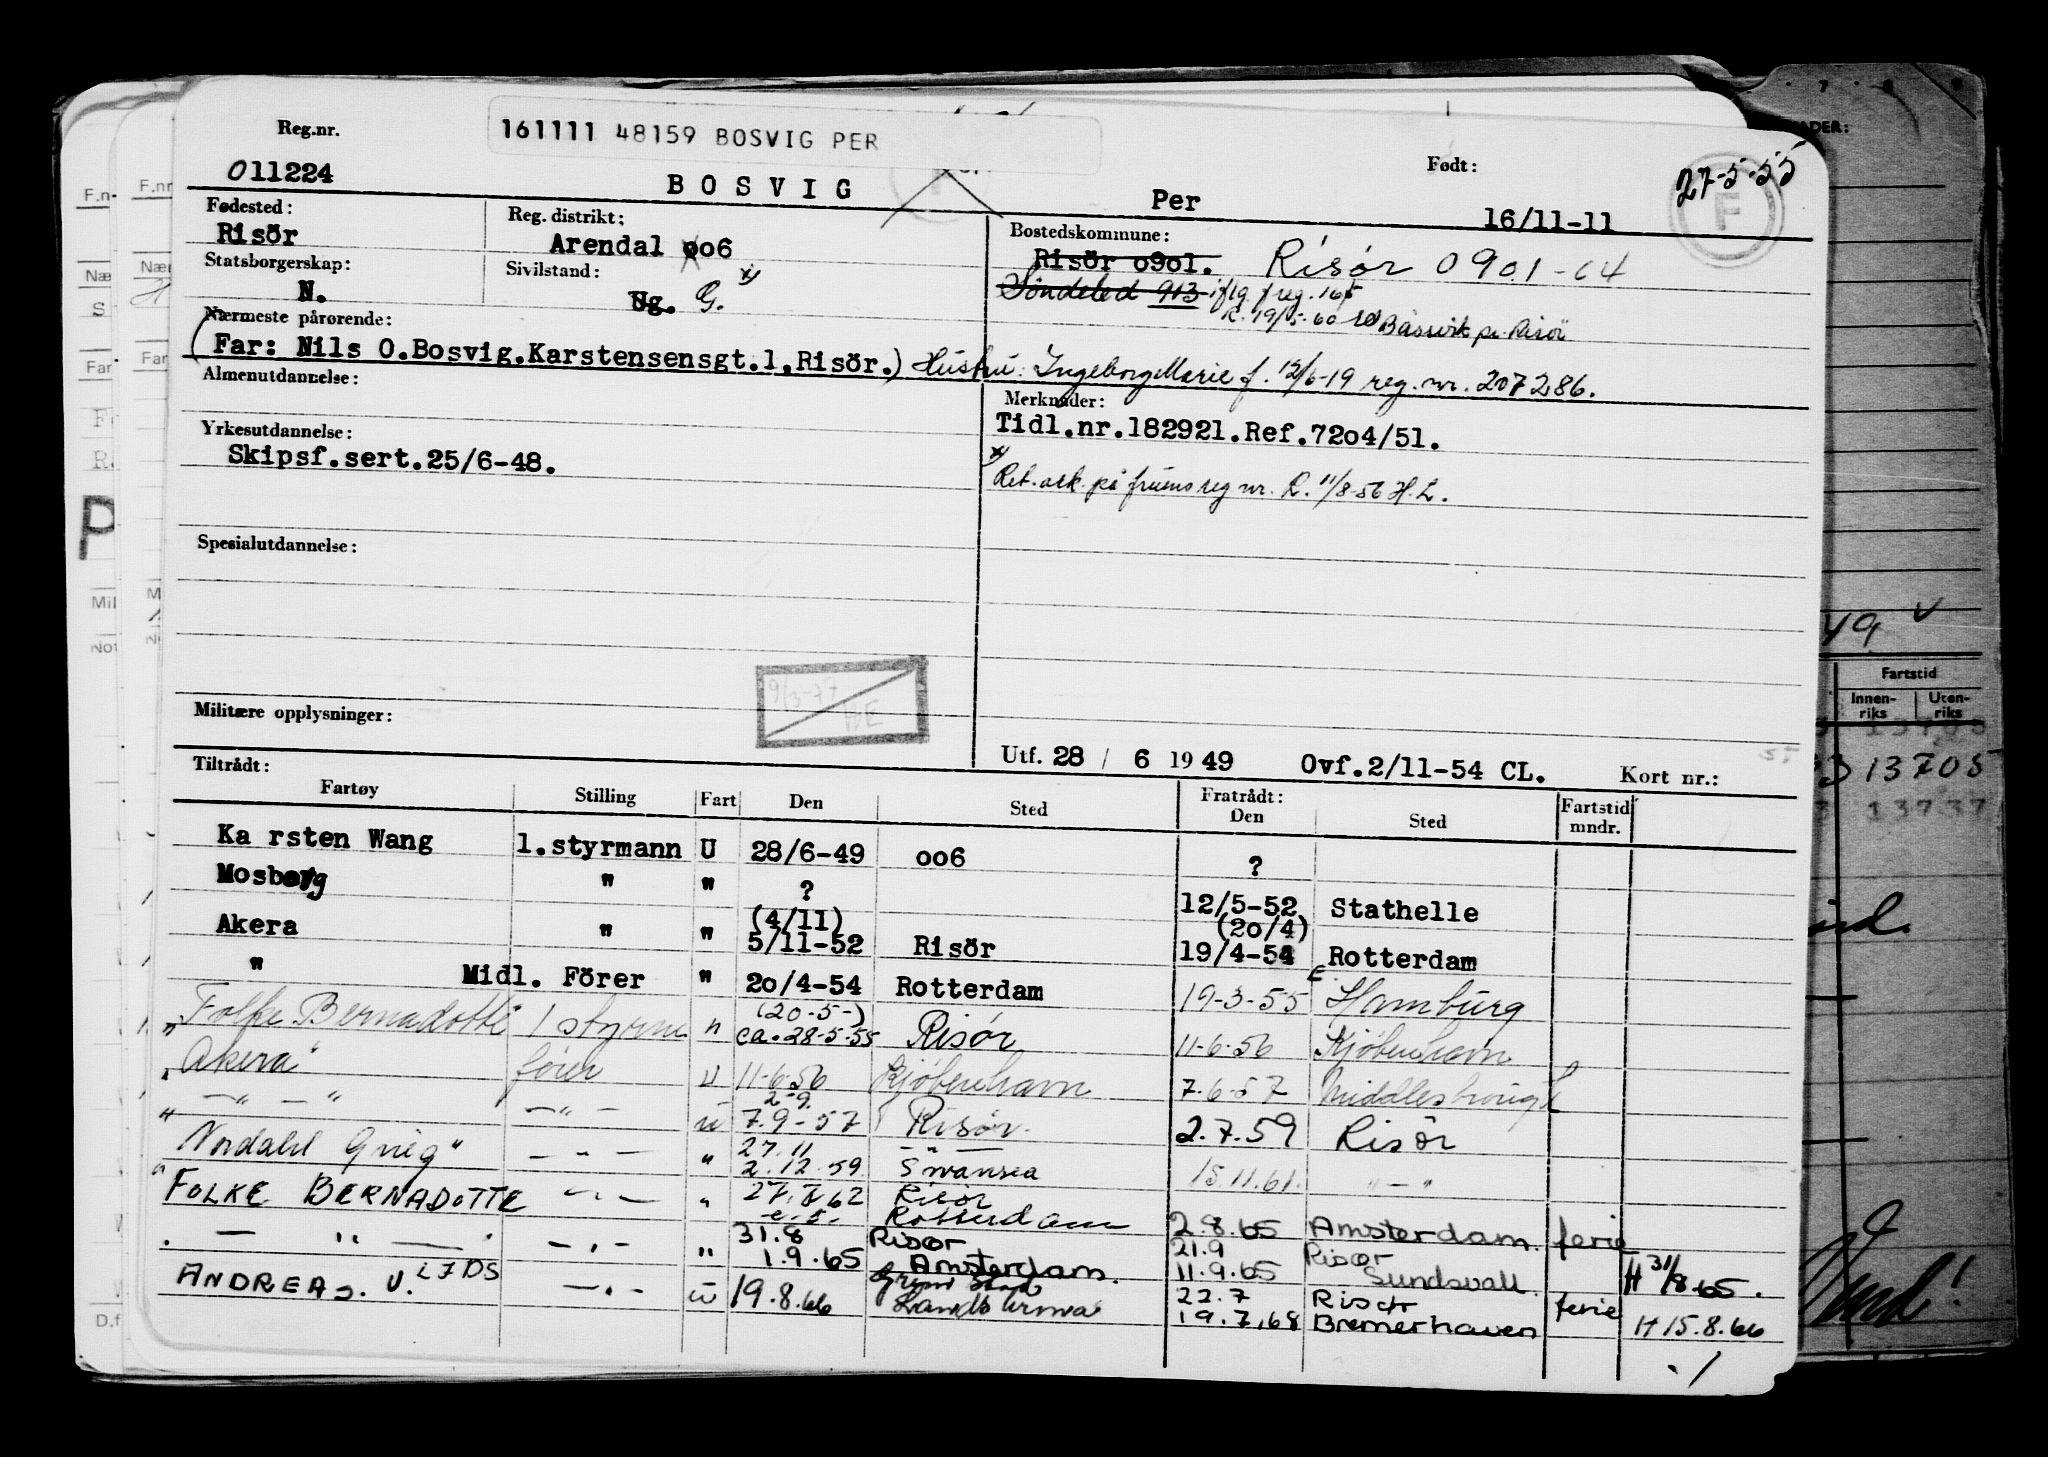 161111 48159 BOSVIG PER
Reg.nr. Født: 27-5-55
011224 BOSVIG Per 16/11-11
F
Fødested: Reg. distrikt: Bostedskommune:
Risör Arendal 006 Risör 0901. Risør 0901-64
Statsborgerskap: Sivilstand: Söndeled 913 iflg. freg. 16/5
N. Ug. G. x) R. 19/5-60 Bàssvik pr. Risör
Nærmeste pårørende:
(Far: Nils O.Bosvig.Karstensensgt.1,Risör.) Hustru: Ingeborg Marie f. 12/6-19 reg. nr. 207286.
Almenutdannelse: Merknader:
Tidl.nr.182921.Ref.7204/51.
Yrkesutdannelse:
Skipsf.sert.25/6-48.
x) Ret. ark. på fruens reg nr. R. 11/8-56 H.L.
Spesialutdannelse:
9/3-77
Militære opplysninger:
Utf. 28 / 6 1949 Ovf.2/11-54 CL. Kort nr.:
Tiltrådt: Fratrådt:
Fartøy Stilling Fart Den Sted Den Sted Fartstid mndr.
Karsten Wang 1.styrmann U 28/6-49 006 ?
Mosberg " " ? 12/5-52 Stathelle
(4/11) (20/4)
Akera " " 5/11-52 Risör 19/4-54 Rotterdam
" Midl. Förer " 20/4-54 Rotterdam 19-3-55 Hamburg
(20-5-)
"Folke Bernadotte 1 styrm " ca. 28-5-55 Risør 11-6-56 Kjøbenhavn
"Akera" fører U 11-6-56 Kjøbenhavn 7-6-57 Middlesbrough
2-9.
" — " — " — " — ü 7.9-57 Risør. 2.7.59 Risör
27.11 — " —
"Nordahl Grieg" — " — " 2.12.59 Swansea 15.11.61. — " —
"FOLKE BERNADOTTE — " — " 27.5.62 Risør
Rotterdam 2.8.65 Amsterdam. ferie
31.8 Risør 21.9 Risør
— " — — " — " 1.9.65 Amsterdam. 11.9.65 Sundsvall. H 31/8.65.
Grimstad 22.7 Risør ferie
ANDREAS. U. — " — ü 19.8.66 Landskrona 19.7.68 Bremerhaven H 15.8.66
Fartstid
Innenriks Utenriks
13705